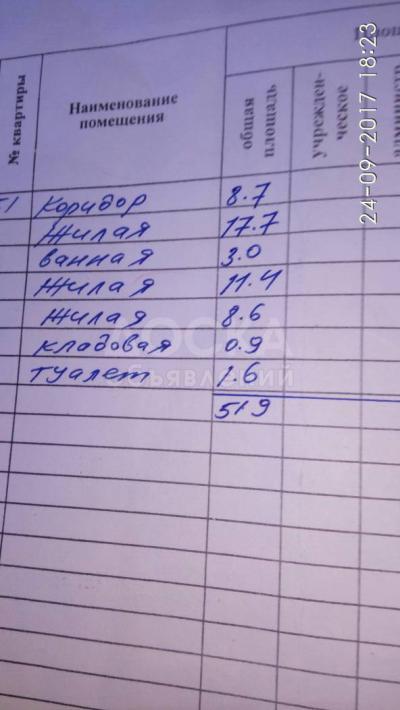 № квартиры
Наименование помещения
общая площадь
учрежден-
ческое
24-09-2017 18:23
коридор 8.7
жилая 17.7
ванная 3.0
жилая 11.4
жилая 8.6
кладовая 0.9
туалет 1.6
51.9
объявлений